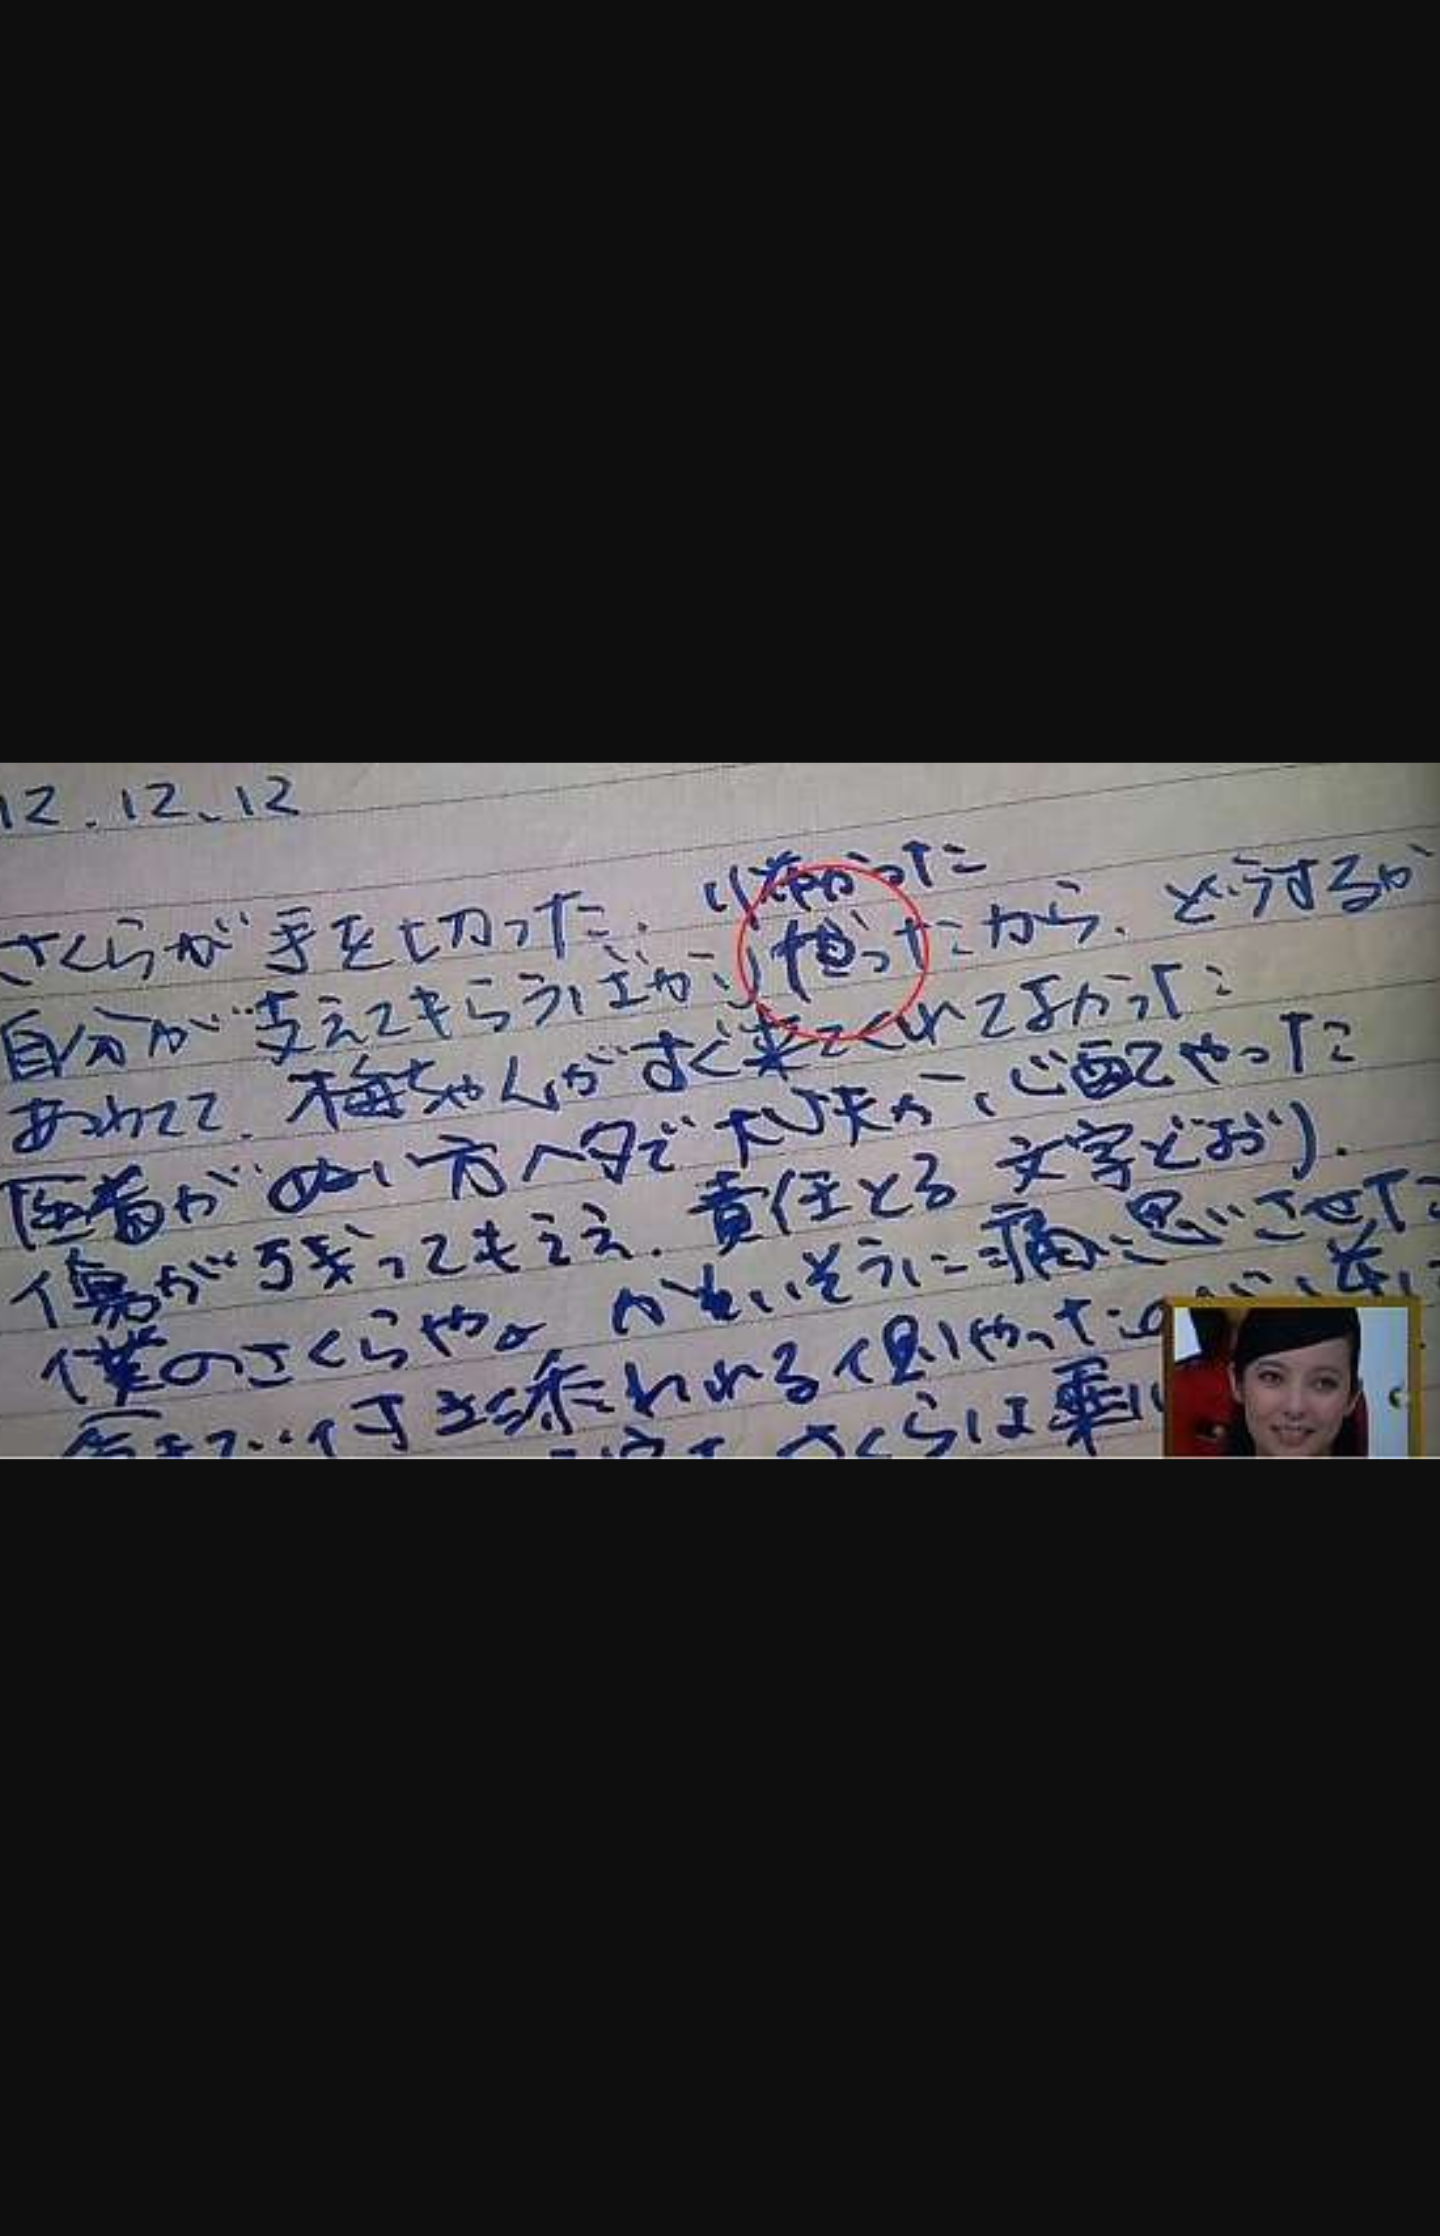 12.12.12
さくらが手を切った. 怖かった
自分が支えてもらうばかりだったから、どうするか
あわてて. 梅ちゃんがすぐ来てくれてよかった
医者がぬい方ヘタで大丈夫か、心配やった
傷が残ってもええ. 責任とる 文字どおり.
僕のさくらやよ かわいそうに痛い思いさせた
付き添われる側やったのが、逆に
さくらは